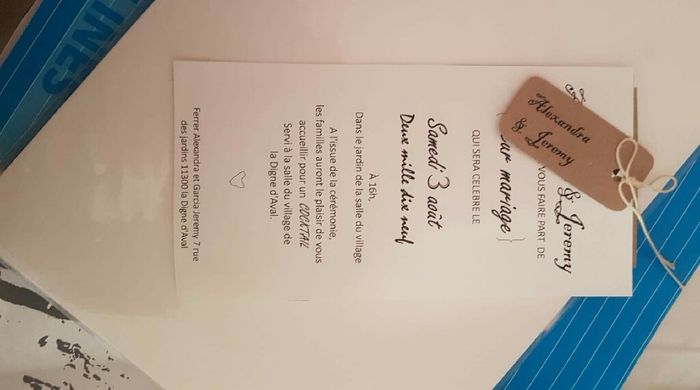 Alexandra
& Jeremy
& Jeremy
VOUS FAIRE PART DE
mariage }
QUI SERA CELEBRE LE
Samedi 3 août
Deux mille dix neuf
À 16h,
Dans le jardin de la salle du village
A l'issue de la cérémonie,
les familles auront le plaisir de vous
accueillir pour un COCKTAIL
Servi à la salle du village de
la Digne d'Aval.
Ferrer Alexandra et Garcia Jeremy 7 rue
des jardins 11300 la Digne d'Aval